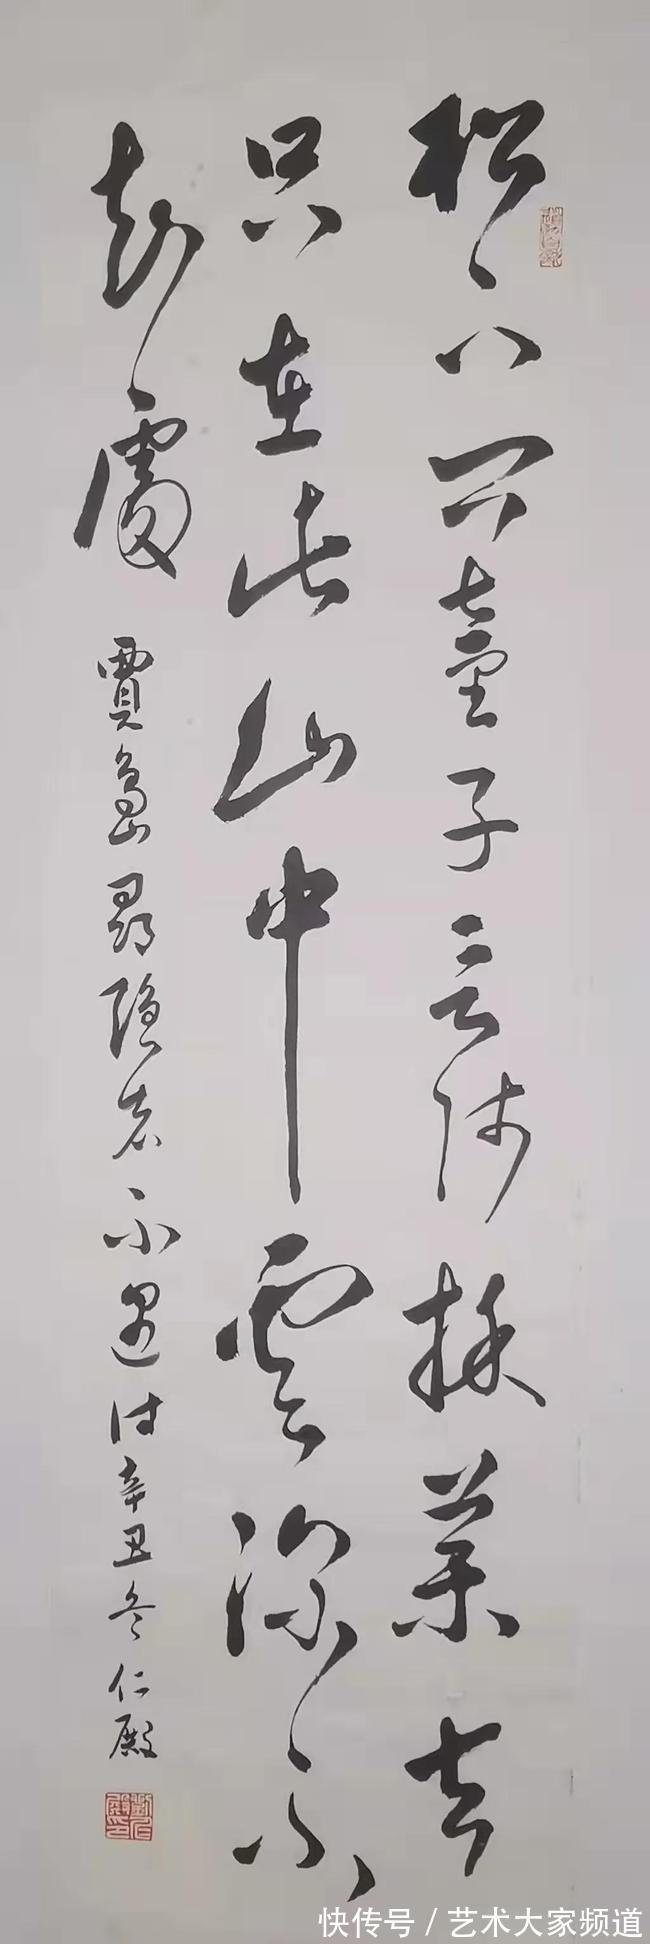 松下问童子言师採药去
只在此山中雲深不
知處
賈島尋隐者不遇诗辛丑冬仁殿
快传号/艺术大家频道